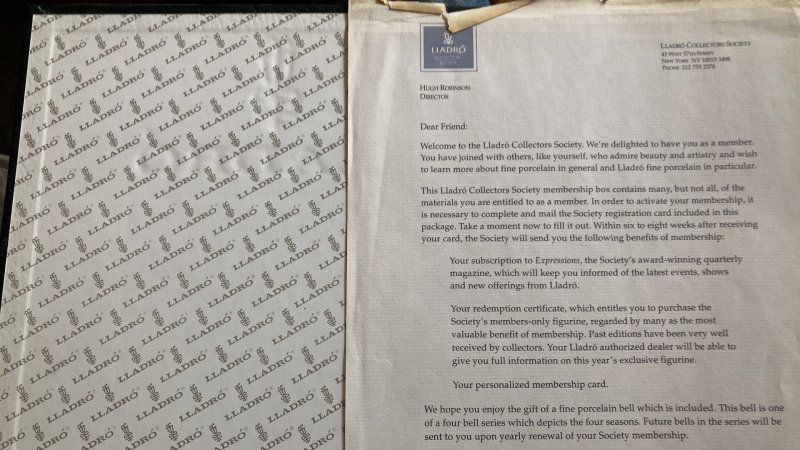 LLADRÓ
COLLECTORS
SOCIETY
LLADRÓ COLLECTORS SOCIETY
43 WEST 57TH STREET
NEW YORK NY 10019 3498
PHONE 212 755 2376
HUGH ROBINSON
DIRECTOR
Dear Friend:
Welcome to the Lladró Collectors Society. We're delighted to have you as a member.
You have joined with others, like yourself, who admire beauty and artistry and wish
to learn more about fine porcelain in general and Lladró fine porcelain in particular.
This Lladró Collectors Society membership box contains many, but not all, of the
materials you are entitled to as a member. In order to activate your membership, it
is necessary to complete and mail the Society registration card included in this
package. Take a moment now to fill it out. Within six to eight weeks after receiving
your card, the Society will send you the following benefits of membership:
Your subscription to Expressions, the Society's award-winning quarterly
magazine, which will keep you informed of the latest events, shows
and new offerings from Lladró.
Your redemption certificate, which entitles you to purchase the
Society's members-only figurine, regarded by many as the most
valuable benefit of membership. Past editions have been very well
received by collectors. Your Lladró authorized dealer will be able to
give you full information on this year's exclusive figurine.
Your personalized membership card.
We hope you enjoy the gift of a fine porcelain bell which is included. This bell is one
of a four bell series which depicts the four seasons. Future bells in the series will be
sent to you upon yearly renewal of your Society membership.